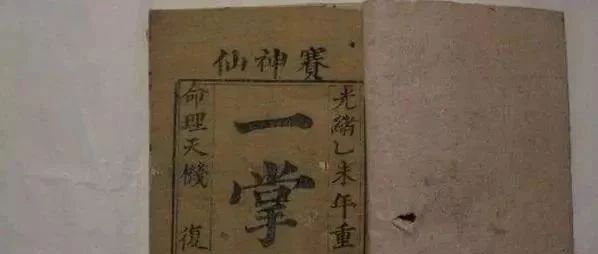 賽神仙
光緒乙未年重
一掌
命理天 復